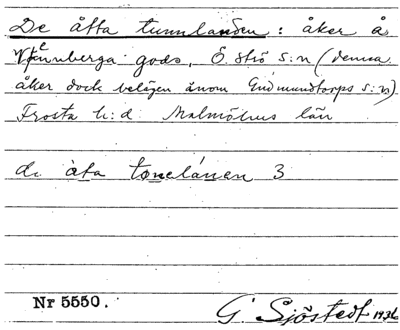 De åtta tunnlanden: åker å
Vännberga gods, Ö. Strö s:n (denna
åker dock belägen inom Gudmundtorps s:n)
Frosta h:d. Malmöhus län
di åta tønelánen 3
Nr 5550.
G. Sjöstedt 1936